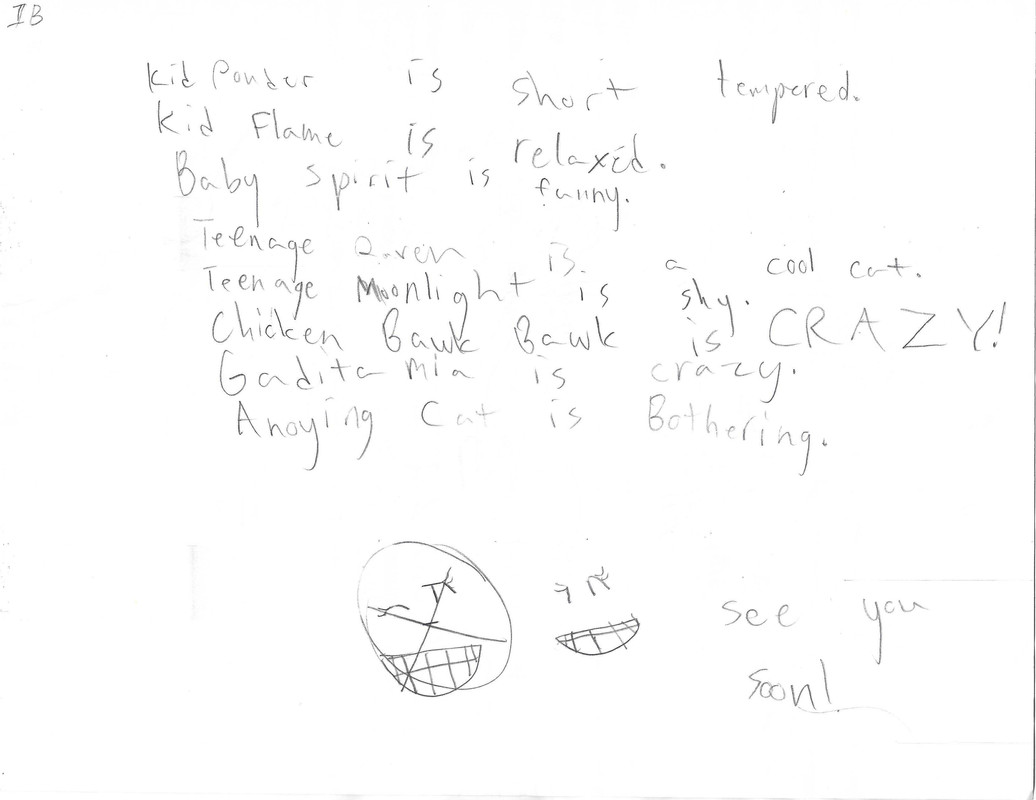 IB
Kid Ponder is short tempered.
Kid Flame is relaxed.
Baby spirit is funny.
Teenage is a cool cat.
Teenage Moonlight is shy.
Chicken Bawk Bawk is CRAZY!
Gadita mia is crazy.
Anoying Cat is Bothering.
see you
soon!